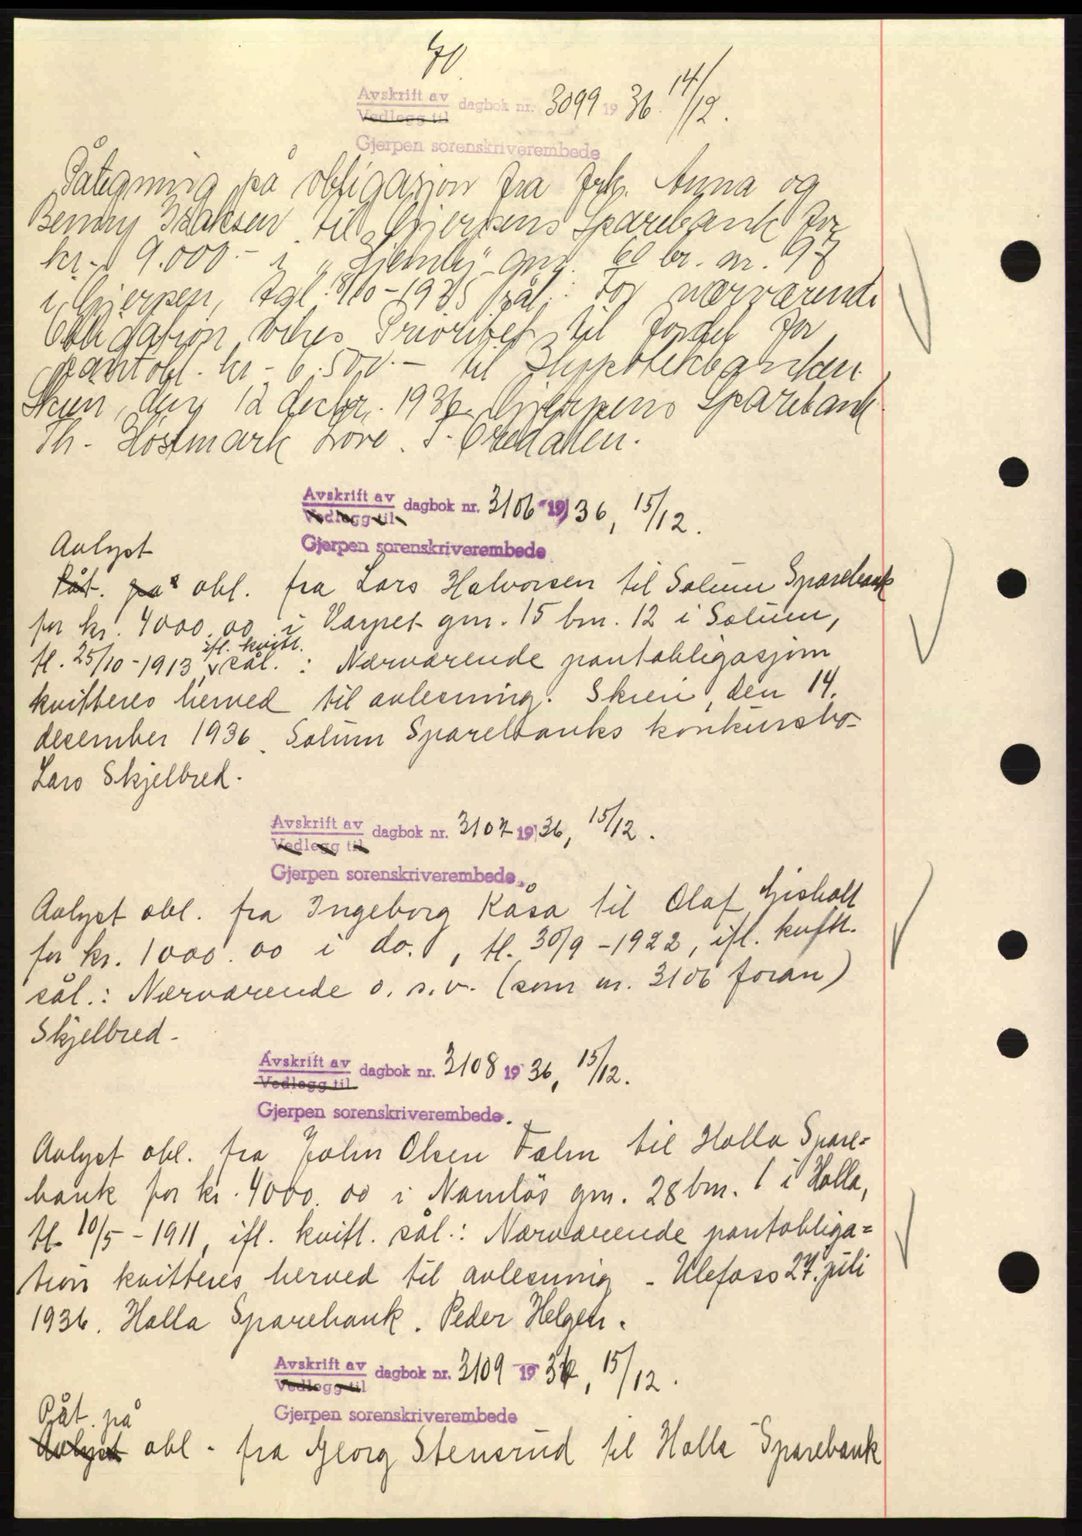 70.
Avskrift av
Vedlegg til dagbok nr. 3099 1936. 14/12.
Gjerpen sorenskriverembede
Påtegning på obligasjon fra frk. Anna og
Benny Isaksen til Gjerpens Sparebank for
kr. 9.000.- i "Hjemly" gnr. 60 br. nr. 97
i Gjerpen, tgl. 8/10-1935 sål.: For nærværende
Obligation vikes Prioritet til fordel for
pantobl. kr. 6.500.- til Hypotekbanken.
Skien, den 12 decbr. 1936. Gjerpens Sparebank.
Th. Høstmark Love.
Avskrift av
Vedlegg til dagbok nr. 3106 1936, 15/12.
Gjerpen sorenskriverembede
Avlyst
Påt. på obl. fra Lars Halvorsen til Solum Sparebank
for kr. 4000.00 i Varpet gnr. 15 bnr. 12 i Solum,
ifl. kvitt.
tl. 25/10-1913, sål.: Nærværende pantobligasjon
kvitteres herved til avlesning. Skien, den 14.
desember 1936. Solum Sparebanks konkursbo-
Lars Skjelbred.
Avskrift av
Vedlegg til dagbok nr. 3107 1936, 15/12.
Gjerpen sorenskriverembede.
Avlyst obl. fra Ingeborg Kåsa til Olaf Gisholt
for kr. 1000.00 i do., tl. 30/9-1922, ifl. kvitt.
sål.: Nærværende o.s.v. (som nr. 3106 foran)
Skjelbred.
Avskrift av
Vedlegg til dagbok nr. 3108 1936, 15/12.
Gjerpen sorenskriverembede.
Avlyst obl. fra John Olsen Tolm til Holla Spare=
bank for kr. 4000.00 i Namløs gnr. 28 bnr. 1 i Holla,
tl. 10/5-1911, ifl. kvitt. sål.: Nærværende pantobliga=
tion kvitteres herved til avlesning - Ulefoss 27. juli
1936. Holla Sparebank. Peder Helgen.
Avskrift av
Vedlegg til dagbok nr. 3109 1936, 15/12.
Gjerpen sorenskriverembede
Påt. på
Avlyst obl. fra Georg Stensrud til Holla Sparebank